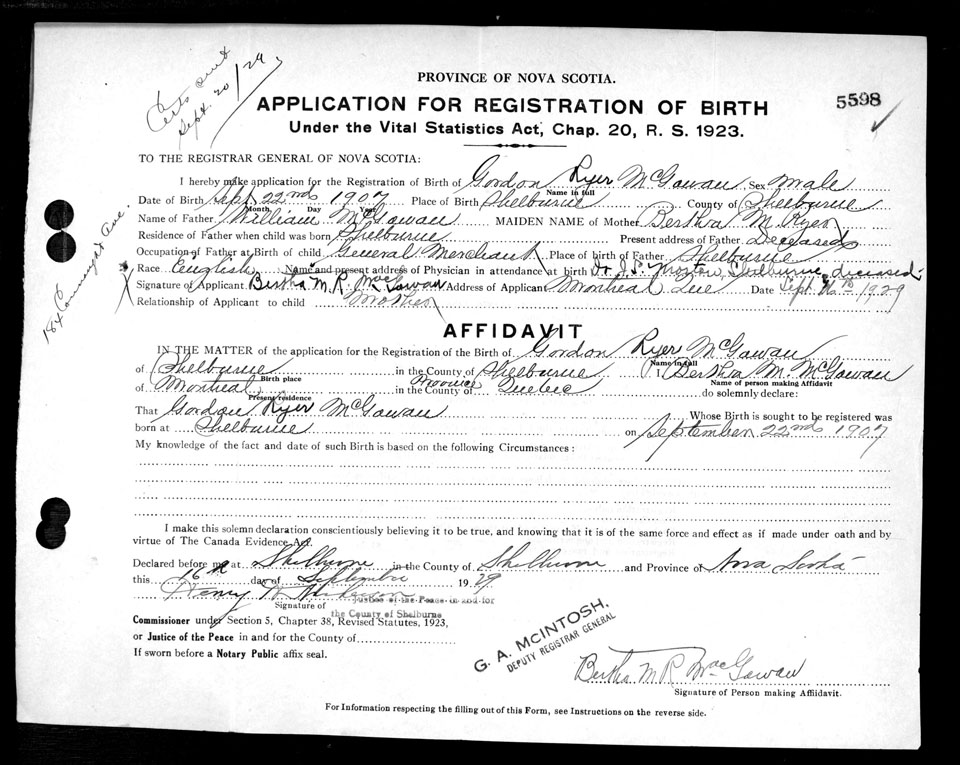 Certs sent
Sept. 20/29
PROVINCE OF NOVA SCOTIA.
5598
APPLICATION FOR REGISTRATION OF BIRTH
Under the Vital Statistics Act, Chap. 20, R. S. 1923.
TO THE REGISTRAR GENERAL OF NOVA SCOTIA:
I hereby make application for the Registration of Birth of Gordon Ryer McGowan Sex Male
Name in full
Date of Birth Sept 22nd 1907 Place of Birth Shelburne County of Shelburne
Month Day Year
Name of Father William McGowan MAIDEN NAME of Mother Bertha M. Ryer
Residence of Father when child was born Shelburne Present address of Father Deceased
Occupation of Father at Birth of child General Merchant Place of birth of Father Shelburne
Race English Name and present address of Physician in attendance at birth Dr J. P. Morton, Shelburne, deceased
Signature of Applicant Bertha M. R. MacGowan Address of Applicant Montreal Que Date Sept. 16th 1929
Relationship of Applicant to child Mother
184
AFFIDAVIT
IN THE MATTER of the application for the Registration of the Birth of Gordon Ryer McGowan
Name in full
of Shelburne in the County of Shelburne I Bertha M. McGowan
Birth place Name of person making Affidavit
of Montreal in the County of Province Quebec do solemnly declare:
Present residence
That Gordon Ryer McGowan Whose Birth is sought to be registered was
born at Shelburne on September 22nd 1907
My knowledge of the fact and date of such Birth is based on the following Circumstances:
I make this solemn declaration conscientiously believing it to be true, and knowing that it is of the same force and effect as if made under oath and by
virtue of The Canada Evidence Act.
Declared before me at Shelburne in the County of Shelburne and Province of Nova Scotia
this 16th day of September 1929
Henry
Signature of Justice of the Peace in and for
the County of Shelburne
Commissioner under Section 5, Chapter 38, Revised Statutes, 1923,
or Justice of the Peace in and for the County of
If sworn before a Notary Public affix seal.
G. A. McINTOSH,
DEPUTY REGISTRAR GENERAL
Bertha M R MacGowan
Signature of Person making Affidavit.
For Information respecting the filling out of this Form, see Instructions on the reverse side.